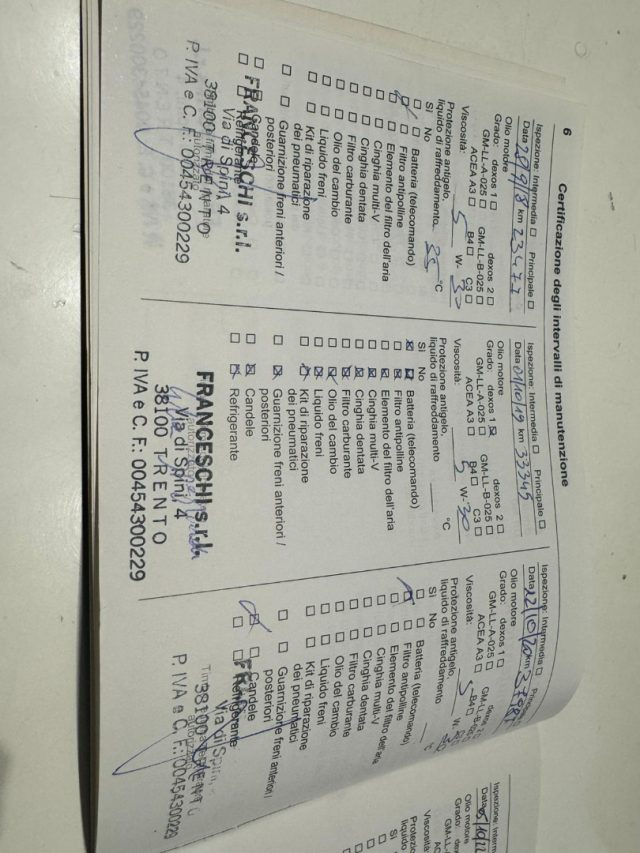 6 Certificazione degli intervalli di manutenzione
Ispezione: Intermedia □ Principale □
Data 28/9/18 km 23477
Olio motore
Grado: dexos 1 □ dexos 2 □
GM-LL-A-025 □ GM-LL-B-025 □
ACEA A3 □ B4 □ C3 □
Viscosità: 5 W- 30
Protezione antigelo,
liquido di raffreddamento 35 °C
Sì No
□ □ Batteria (telecomando)
□ Filtro antipolline
□ □ Elemento del filtro dell'aria
□ □ Cinghia multi-V
□ □ Cinghia dentata
□ □ Filtro carburante
□ □ Olio del cambio
□ □ Liquido freni
□ □ Kit di riparazione
dei pneumatici
□ □ Guarnizione freni anteriori /
posteriori
□ □ Candele
□ □ Refrigerante
FRANCESCHI s.r.l.
Via di Spini, 4
38100 TRENTO
P. IVA e C. F.: 00454300229
Ispezione: Intermedia □ Principale □
Data 01/10/19 km 33345
Olio motore
Grado: dexos 1 ☒ dexos 2 □
GM-LL-A-025 □ GM-LL-B-025 □
ACEA A3 □ B4 □ C3 □
Viscosità: 5 W- 30
Protezione antigelo,
liquido di raffreddamento °C
Sì No
☒ Batteria (telecomando)
☒ Filtro antipolline
□ ☒ Elemento del filtro dell'aria
□ ☒ Cinghia multi-V
□ ☒ Cinghia dentata
□ ☒ Filtro carburante
□ ☒ Olio del cambio
□ ☒ Liquido freni
□ ☒ Kit di riparazione
dei pneumatici
□ ☒ Guarnizione freni anteriori /
posteriori
□ ☒ Candele
□ ☒ Refrigerante
FRANCESCHI s.r.l.
Via di Spini, 4
38100 TRENTO
P. IVA e C. F.: 00454300229
Ispezione: Intermedia □
Data 22/10/20 km
Olio motore
Grado: dexos 1 □
GM-LL-A-025 □
ACEA A3 □ B4 □
Viscosità: 5 W-
Protezione antigelo,
liquido di raffreddamento
Sì No
□ □ Batteria (telecomando)
□ Filtro antipolline
□ □ Elemento del filtro dell'aria
□ □ Cinghia multi-V
□ □ Cinghia dentata
□ □ Filtro carburante
□ □ Olio del cambio
□ □ Liquido freni
□ □ Kit di riparazione
dei pneumatici
□ □ Guarnizione freni anteriori /
posteriori
□ Candele
□ □ Refrigerante
Via di Spini,
38100 TRENTO
P. IVA e C. F.: 00454300229
Ispezione:
Data
Olio motore
Grado:
Viscosità: